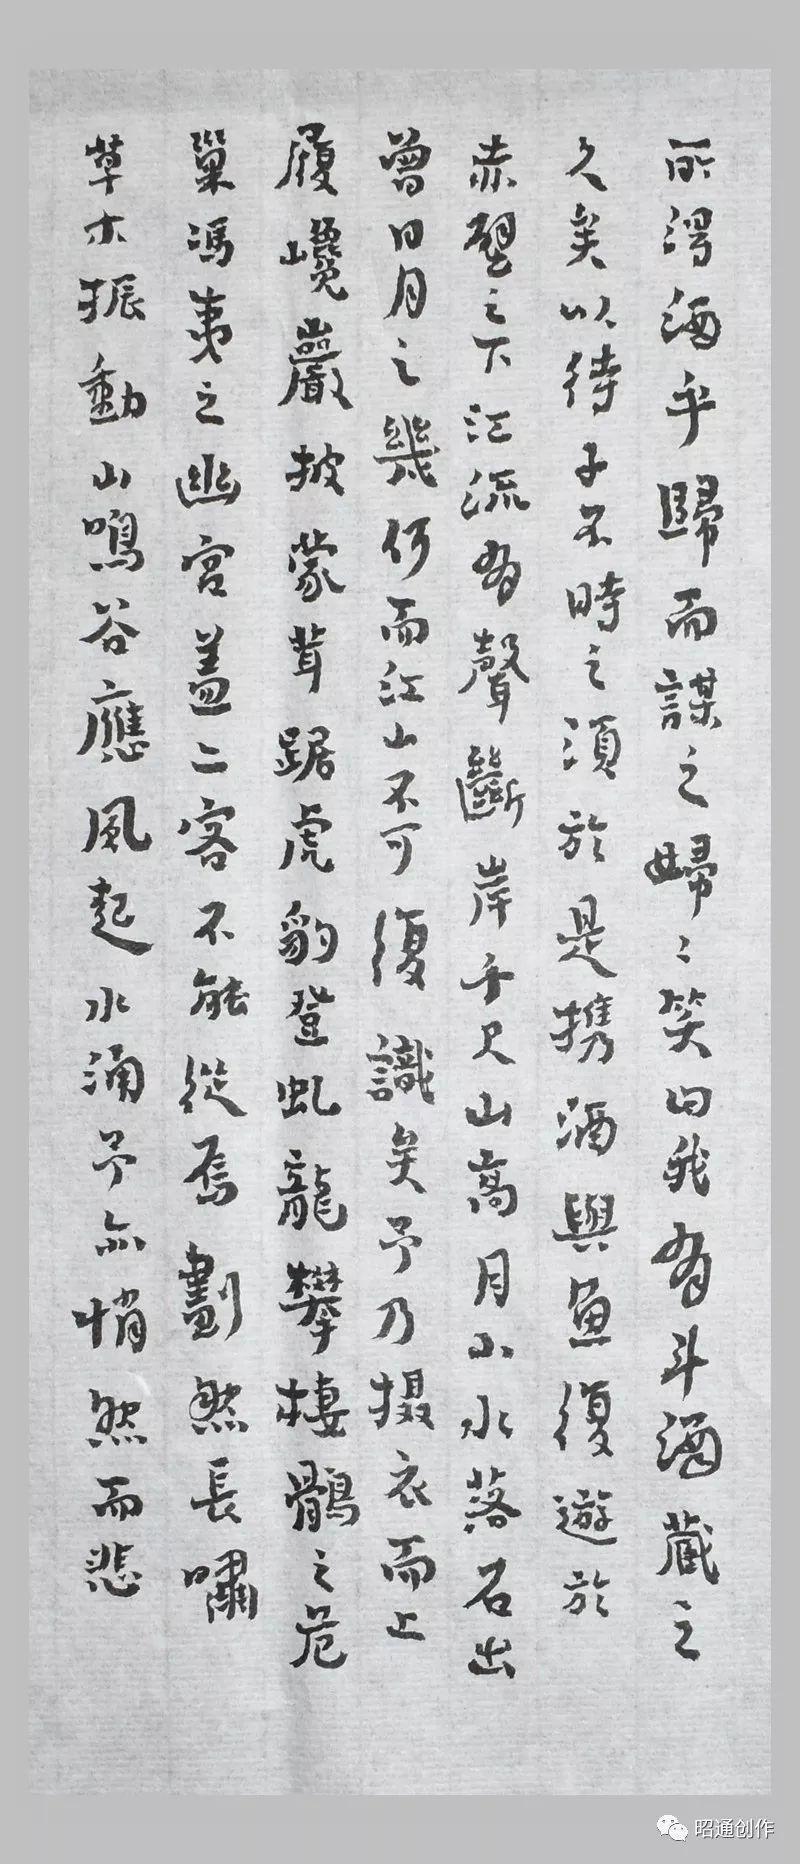 所得酒乎歸而謀之婦〻笑曰我有斗酒藏之
久矣以待子不時之須於是攜酒與魚復遊於
赤壁之下江流有聲斷岸千尺山高月小水落石出
曾日月之幾何而江山不可復識矣予乃摄衣而上
履巉巖披蒙茸踞虎豹登虬龍攀棲鶻之危
巢馮夷之幽宮盖二客不能從焉劃然長嘯
草木振動山鳴谷應風起水涌予亦悄然而悲
昭通创作